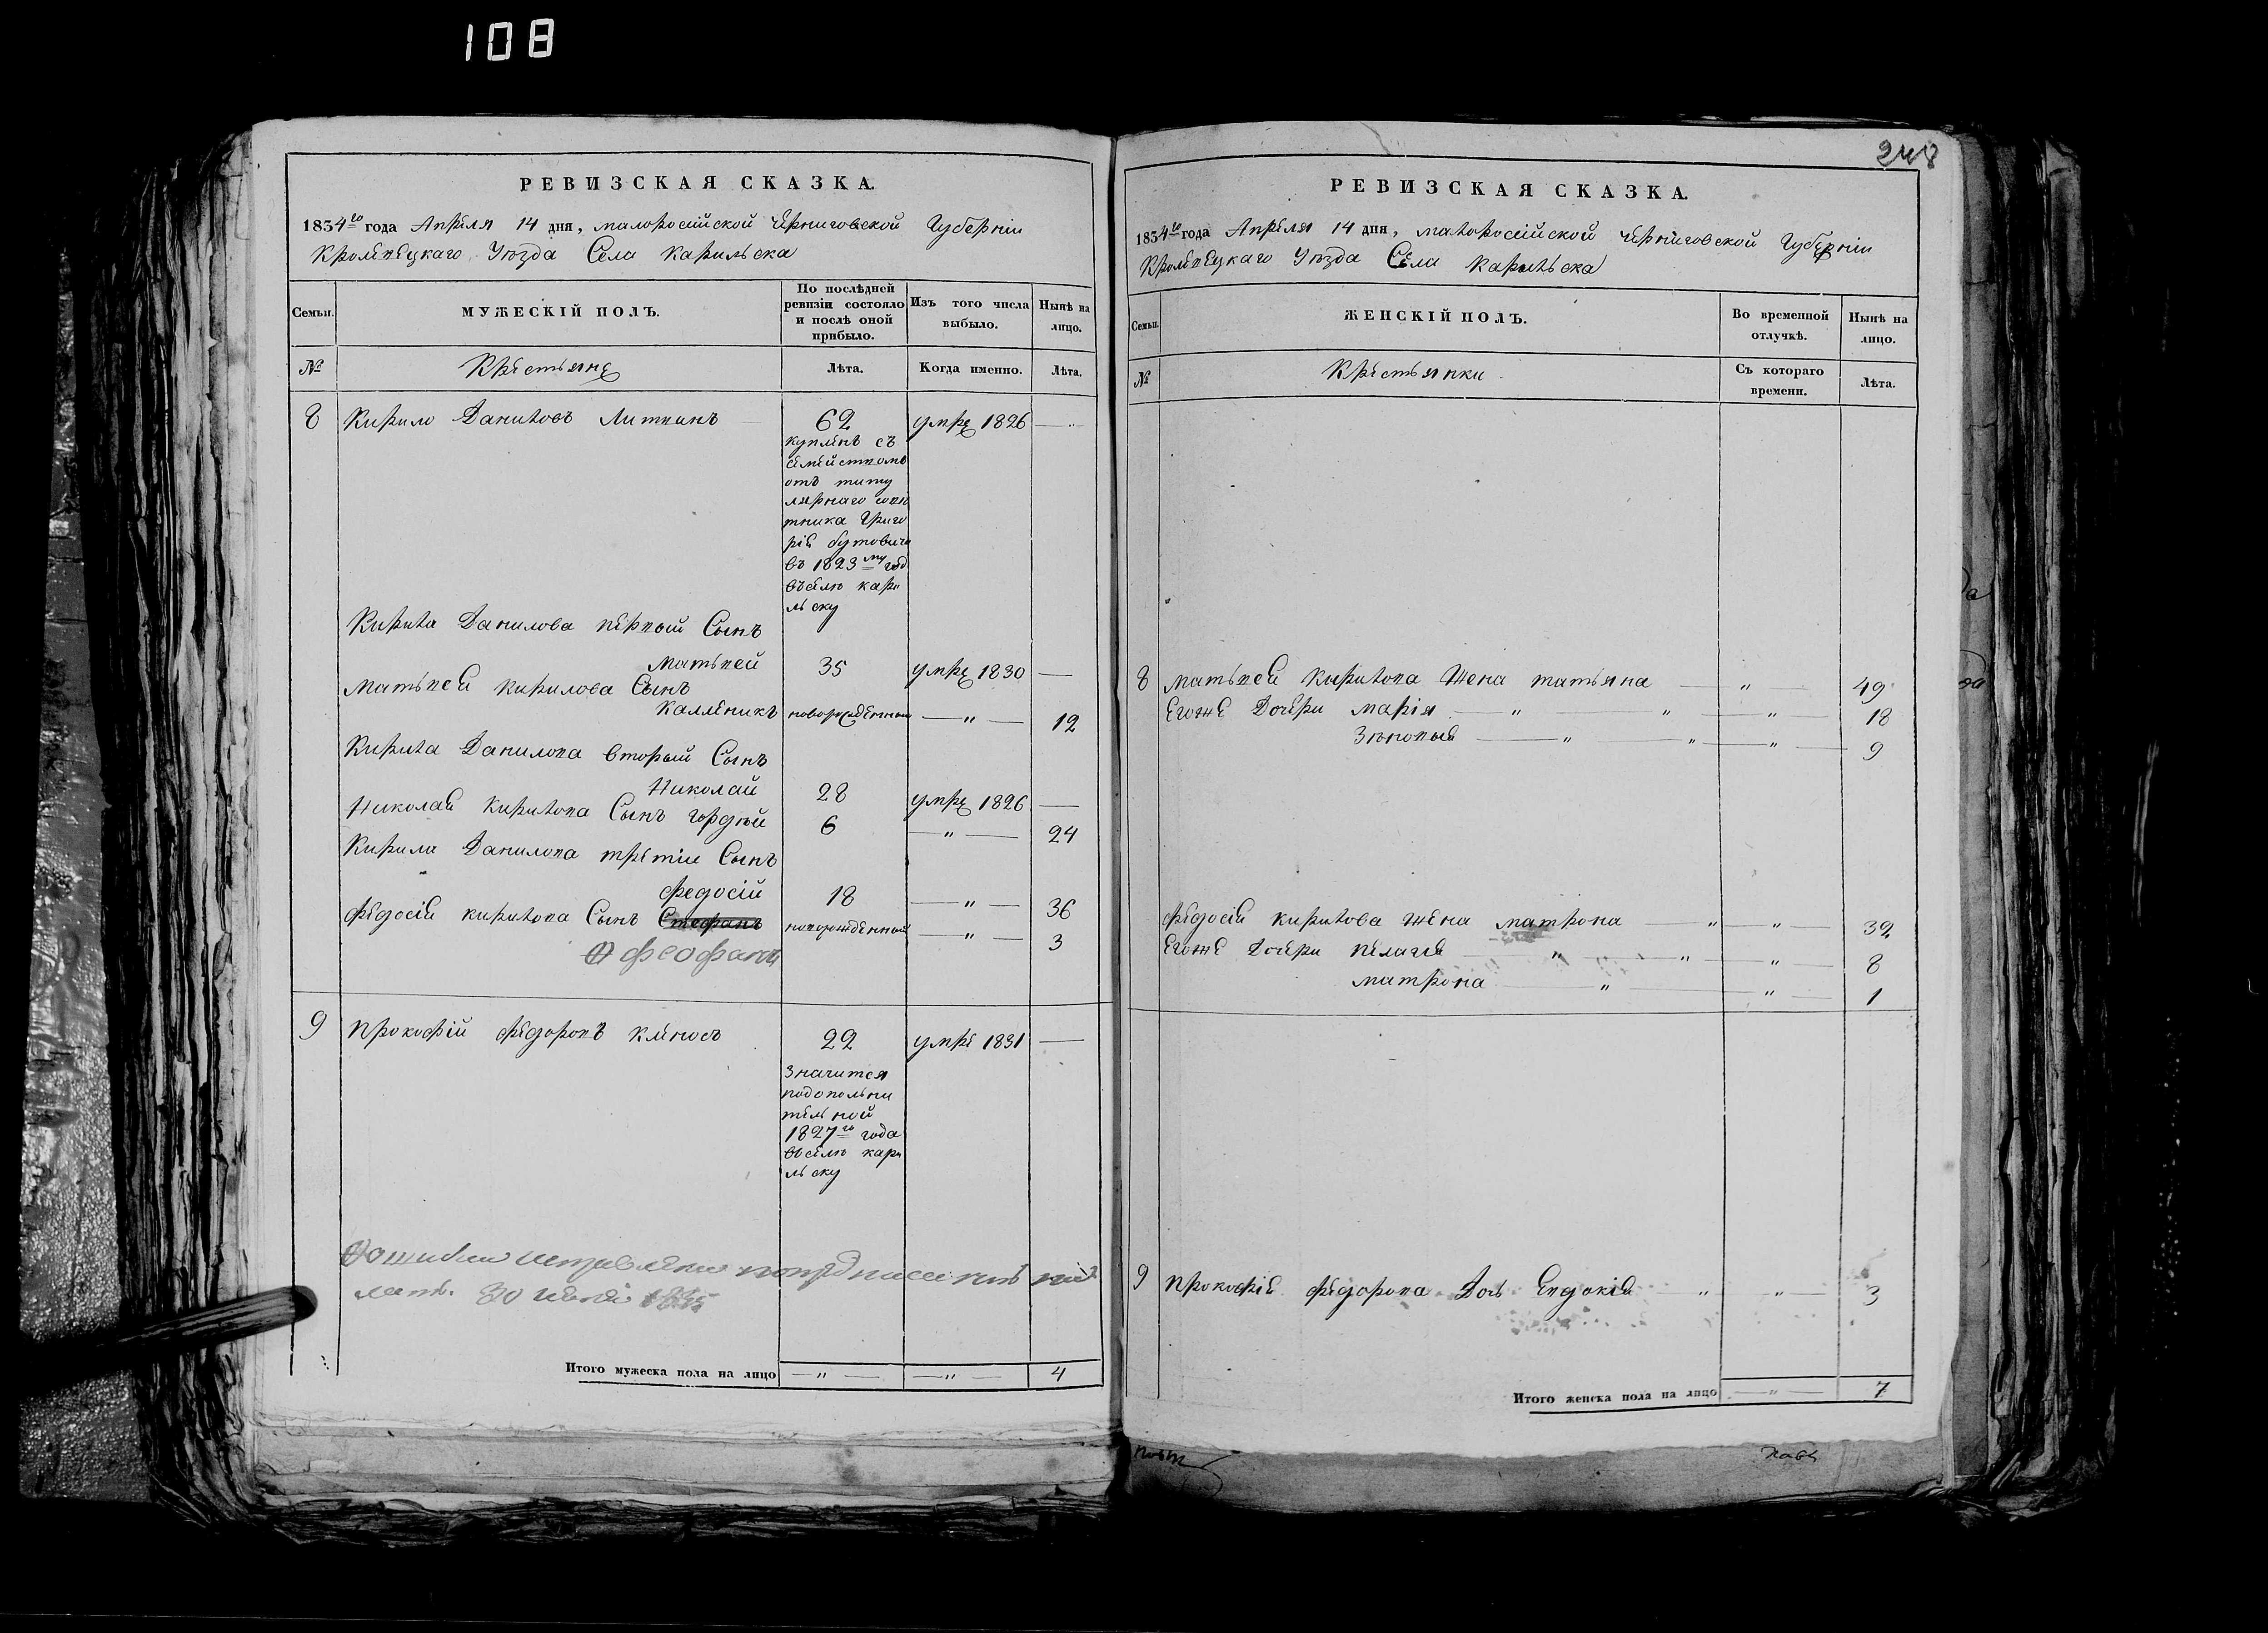 108
РЕВИЗСКАЯ СКАЗКА.
1834го года Апреля 14 дня, малоросiйской Черниговской Губернiи
Кролевецкаго Уѣзда Села Карильска
Семьи.
МУЖЕСКIЙ ПОЛЪ.
По послѣдней ревизiи состояло и послѣ оной прибыло.
Изъ того числа выбыло.
Нынѣ на лицо.
№
Крестьяне
Лѣта.
Когда именно.
Лѣта.
8 Кирило Даниловъ Литвинъ 62 умре 1826 — " —
купленъ съ
семействомъ
отъ титу
лярнаго совѣ
тника Григо
рiя бутовича
въ 1823му год
въселѣ кари
льску
Кирила Данилова первый Сынъ
Матьвей 35 умре 1830 —
Матьвея Кирилова Сынъ
Калленикъ новорожденный — " — 12
Кирила Данилова вторый Сынъ
Николай 28 умре 1826 —
Николая Кирилова Сынъ гордѣй 6 — " — 24
Кирила Данилова третiй Сынъ
Федосiй 18 — " — 36
Федосiя Кирилова Сынъ Стефанъ новорожденный — " — 3
феофанъ
9 Прокофiй Федоровъ Кленосъ 22 умре 1831 —
значится
подополни
тельной
1827го года
въселѣ кари
льску
ошибки исправлены
30
Итого мужеска пола на лицо — " — — " — 4
248
РЕВИЗСКАЯ СКАЗКА.
1834го года Апреля 14 дня, малоросiйской Черниговской Губернiи
Кролевецкаго Уѣзда Села Карильска
Семьи.
ЖЕНСКIЙ ПОЛЪ.
Во временной отлучкѣ.
Нынѣ на лицо.
№
Крестьянки
Съ котораго времени.
Лѣта.
8 Матьвея Кирилова Жена татьяна — " — 49
Егоже Дочери Марiя — " — " — " — 18
Зѣновья — " — " — " — 9
Федосiя Кирилова Жена матрона — " — " — 32
Егоже Дочери Пелагея — " — " — " — 8
матрона — " — " — 1
9 Прокофiя Федорова Дочь Евдокiя — " — " — 3
Итого женска пола на лицо — " — 7